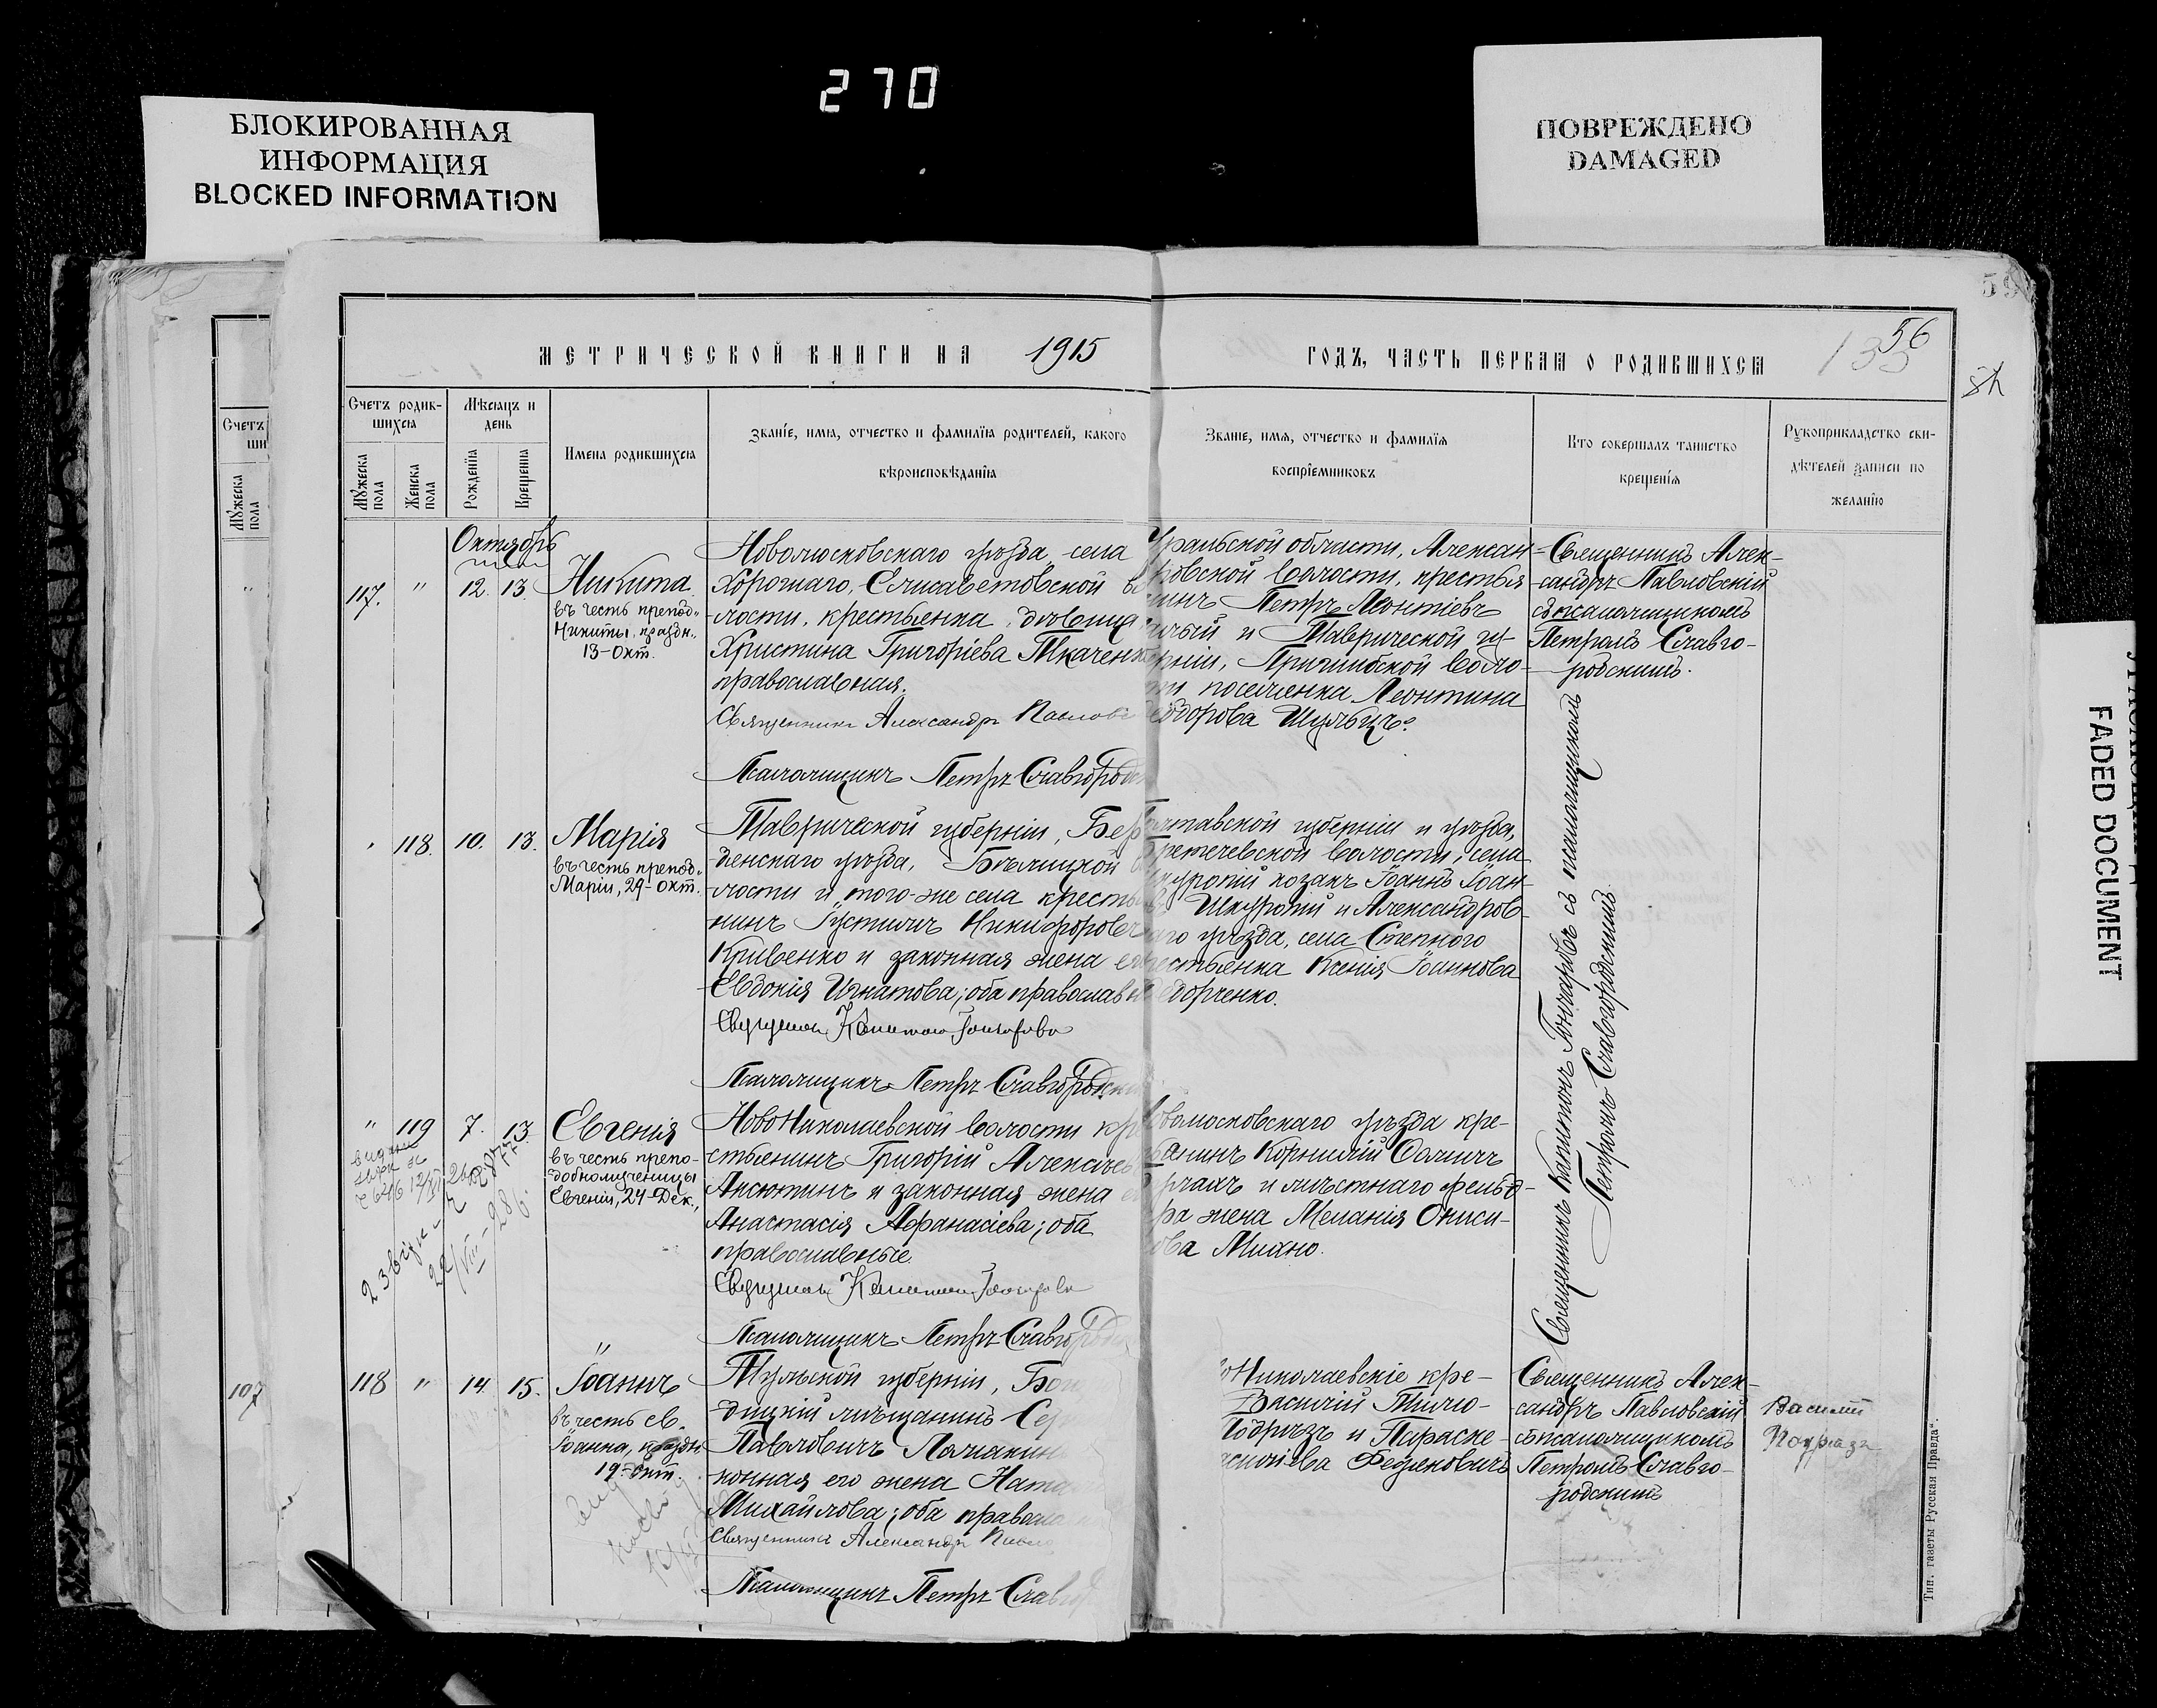 270
БЛОКИРОВАННАЯ
ИНФОРМАЦИЯ
BLOCKED INFORMATION
ПОВРЕЖДЕНО
DAMAGED
FADED DOCUMENT
56
МЕТРИЧЕСКОЙ КНИГИ НА 1915
ГОДЪ, ЧАСТЬ ПЕРВАЯ О РОДИВШИХСЯ
Счетъ родив-
шихся
Мѣсяцъ и
день
Мужеска
пола
Женска
пола
Рожденія
Крещенія
Имена родившихся
Званіе, имя, отчество и фамилія родителей, какого
вѣроисповѣданія
Званіе, имя, отчество и фамилія
воспріемниковъ
Кто совершалъ таинство
крещенія
Рукоприкладство сви-
дѣтелей записи по
желанію
Октябрь
117. " 12. 13.
Никита
въ честь препод.
Никиты, праздн.
13-Окт.
Новомосковскаго уѣзда, села
Хорошаго, Елисаветовской во
лости, крестьянка, дѣвица
Христина Григоріева Ткаченк
православная.
Священникъ Александръ Павловс
Псаломщикъ Петръ Славгородс
Уральской области, Алексан-
ровской волости, крестья
нинъ Петръ Леонтіевъ
и Таврической гу
ерніи, Пришибской воло-
ти поселянка Леонтина
еодорова Шульцъ.
Священникъ Алек-
сандръ Павловскій
съ псаломщикомъ
Петромъ Славго-
родскимъ.
118. 10. 13.
Марія
въ честь препод.
Маріи, 29-окт.
Таврической губерніи, Бер
дянскаго уѣзда, Бѣлицкой во
лости и того-же села кресть
нинъ Іустинъ Никифоровъ
Кривенко и законная жена ег
Евдокія Игнатова; оба православн
Священникъ Капитонъ Гончаровъ
Псаломщикъ Петръ Славгородски
лтавской губерніи и уѣзда,
ретечевской волости, села
куропій козакъ Іоаннъ Іоан-
Шкуропій и Александров-
аго уѣзда, села Степного
рестьянка Ксенія Іоаннова
едорченко.
Священникъ Капитонъ Гончаровъ съ псаломщикомъ
Петромъ Славгородскимъ.
" 119 7. 13.
Евгенія
въ честь препо-
добномученицы
Евгеніи, 24-Дек.
НовоНиколаевской волости кре
стьянинъ Григорій Алексѣев
Ансютинъ и законная жена ег
Анастасія Афанасіева; оба
православные.
Священникъ Капитонъ Гончаровъ
Псаломщикъ Петръ Славгородс
овомосковскаго уѣзда кре-
ьянинъ Корнилій
и мѣстнаго фельд-
ра жена Меланія Ониси-
ова Михно.
118 " 14. 15.
Іоаннъ
въ честь св.
Іоанна, праздн.
19-окт.
Тульской губерніи, Бого
дицкій мѣщанинъ Сер
Павловичъ
конная его жена Ната
Михайлова; оба правосла
Священникъ Александръ Павло
Псаломщикъ Петръ Славгор
оНиколаевскіе кре-
Василій Тимо-
Подрѣзъ и Параске-
Федяковичъ
Священникъ Алек-
сандръ Павловскій
съ псаломщикомъ
Петромъ Славго-
родскимъ
Василій
Подрезъ
Счетъ
ши
Мужеска
пола
107
Тип. газеты Русская Правда".